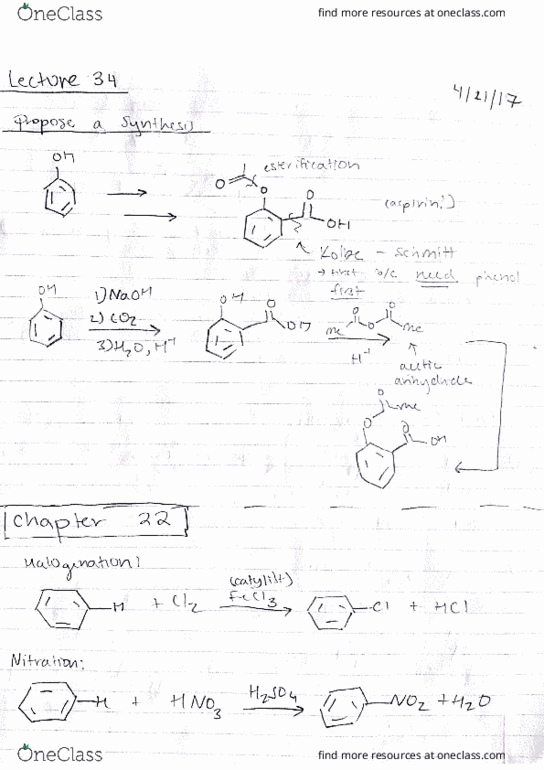 OneClass
find more resources at oneclass.com
Lecture 34
4/21/17
Propose a Synthesis
OH
esterification
O
O
O
OH
(aspirin!)
Kolbe - Schmitt
→ first b/c need phenol
first
OH
1) NaOH
2) CO2
3) H2O, H+
OH
O
OH
O
O
O
Me
Me
H+
acetic
anhydride
O
Me
O
O
OH
Chapter 22
Halogenation:
(catylist)
H + Cl2
FeCl3
Cl + HCl
Nitration:
H + HNO3
H2SO4
NO2 + H2O
OneClass
find more resources at oneclass.com